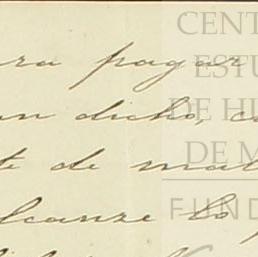 ra pagar
an dicho, c
te de mal
lcanze lo p
CENT
ESTU
DE HI
DE M
FUND